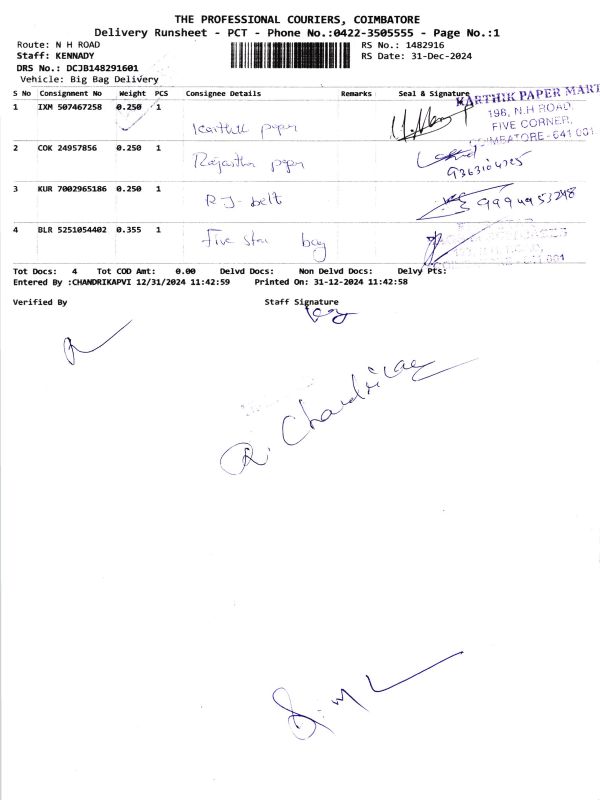 THE PROFESSIONAL COURIERS, COIMBATORE
Delivery Runsheet - PCT - Phone No.:0422-3505555 - Page No.:1
Route: N H ROAD RS No.: 1482916
Staff: KENNADY RS Date: 31-Dec-2024
DRS No.: DCJB148291601
Vehicle: Big Bag Delivery
S No Consignment No Weight PCS Consignee Details Remarks Seal & Signature
KARTHIK PAPER MART
198, N.H ROAD,
FIVE CORNER,
COIMBATORE - 641 001
1 IXM 507467258 0.250 1
Karthik paper
2 COK 24957856 0.250 1
Rajasthan paper
9363104725
3 KUR 7002965186 0.250 1
RJ- belt
9994953248
4 BLR 5251054402 0.355 1
Five star bag
Tot Docs: 4 Tot COD Amt: 0.00 Delvd Docs: Non Delvd Docs: Delvy Pts:
Entered By :CHANDRIKAPVI 12/31/2024 11:42:59 Printed On: 31-12-2024 11:42:58
Verified By Staff Signature
R. Chandrika